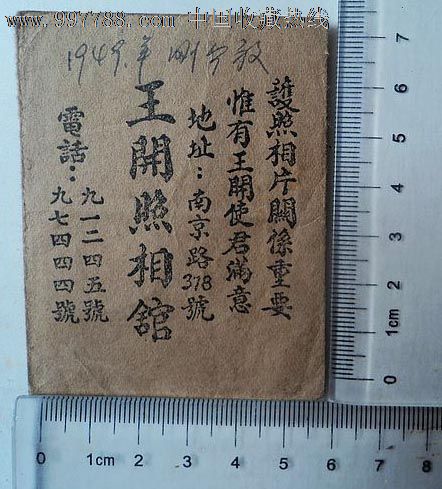 www.997788.com 中国收藏热线
1949.年
護照相片關係重要
惟有王開使君滿意
地址：南京路318號
王開照相舘
電話：九一二四五號
九七四四四號
7
6
5
4
3
2
1cm
0
0 1cm 2 3 4 5 6 7 8